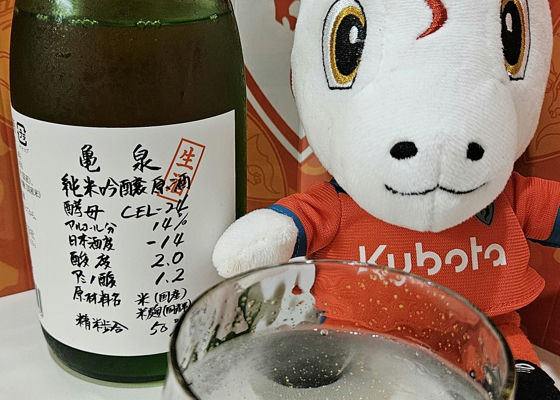 亀泉
生酒
純米吟醸原酒
酵母 CEL-24
アルコール分 14%
日本酒度 -14
酸度 2.0
アミノ酸 1.2
原材料名 米(国産)
米麹(国産米)
精米歩合 50
Kubota